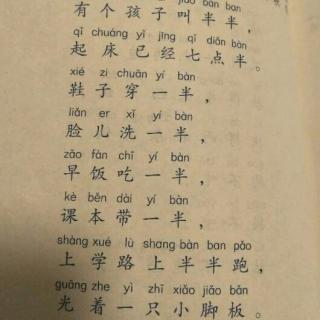 jiào bàn ban
有个孩子叫半半，
qǐ chuáng yǐ jīng qī diǎn bàn
起床已经七点半。
xié zi chuān yí bàn
鞋子穿一半，
liǎn er xǐ yí bàn
脸儿洗一半，
zǎo fàn chī yí bàn
早饭吃一半，
kè běn dài yí bàn
课本带一半，
shàng xué lù shang bàn ban pǎo
上学路上半半跑，
guāng zhe yì zhī xiǎo jiǎo bǎn
光着一只小脚板。